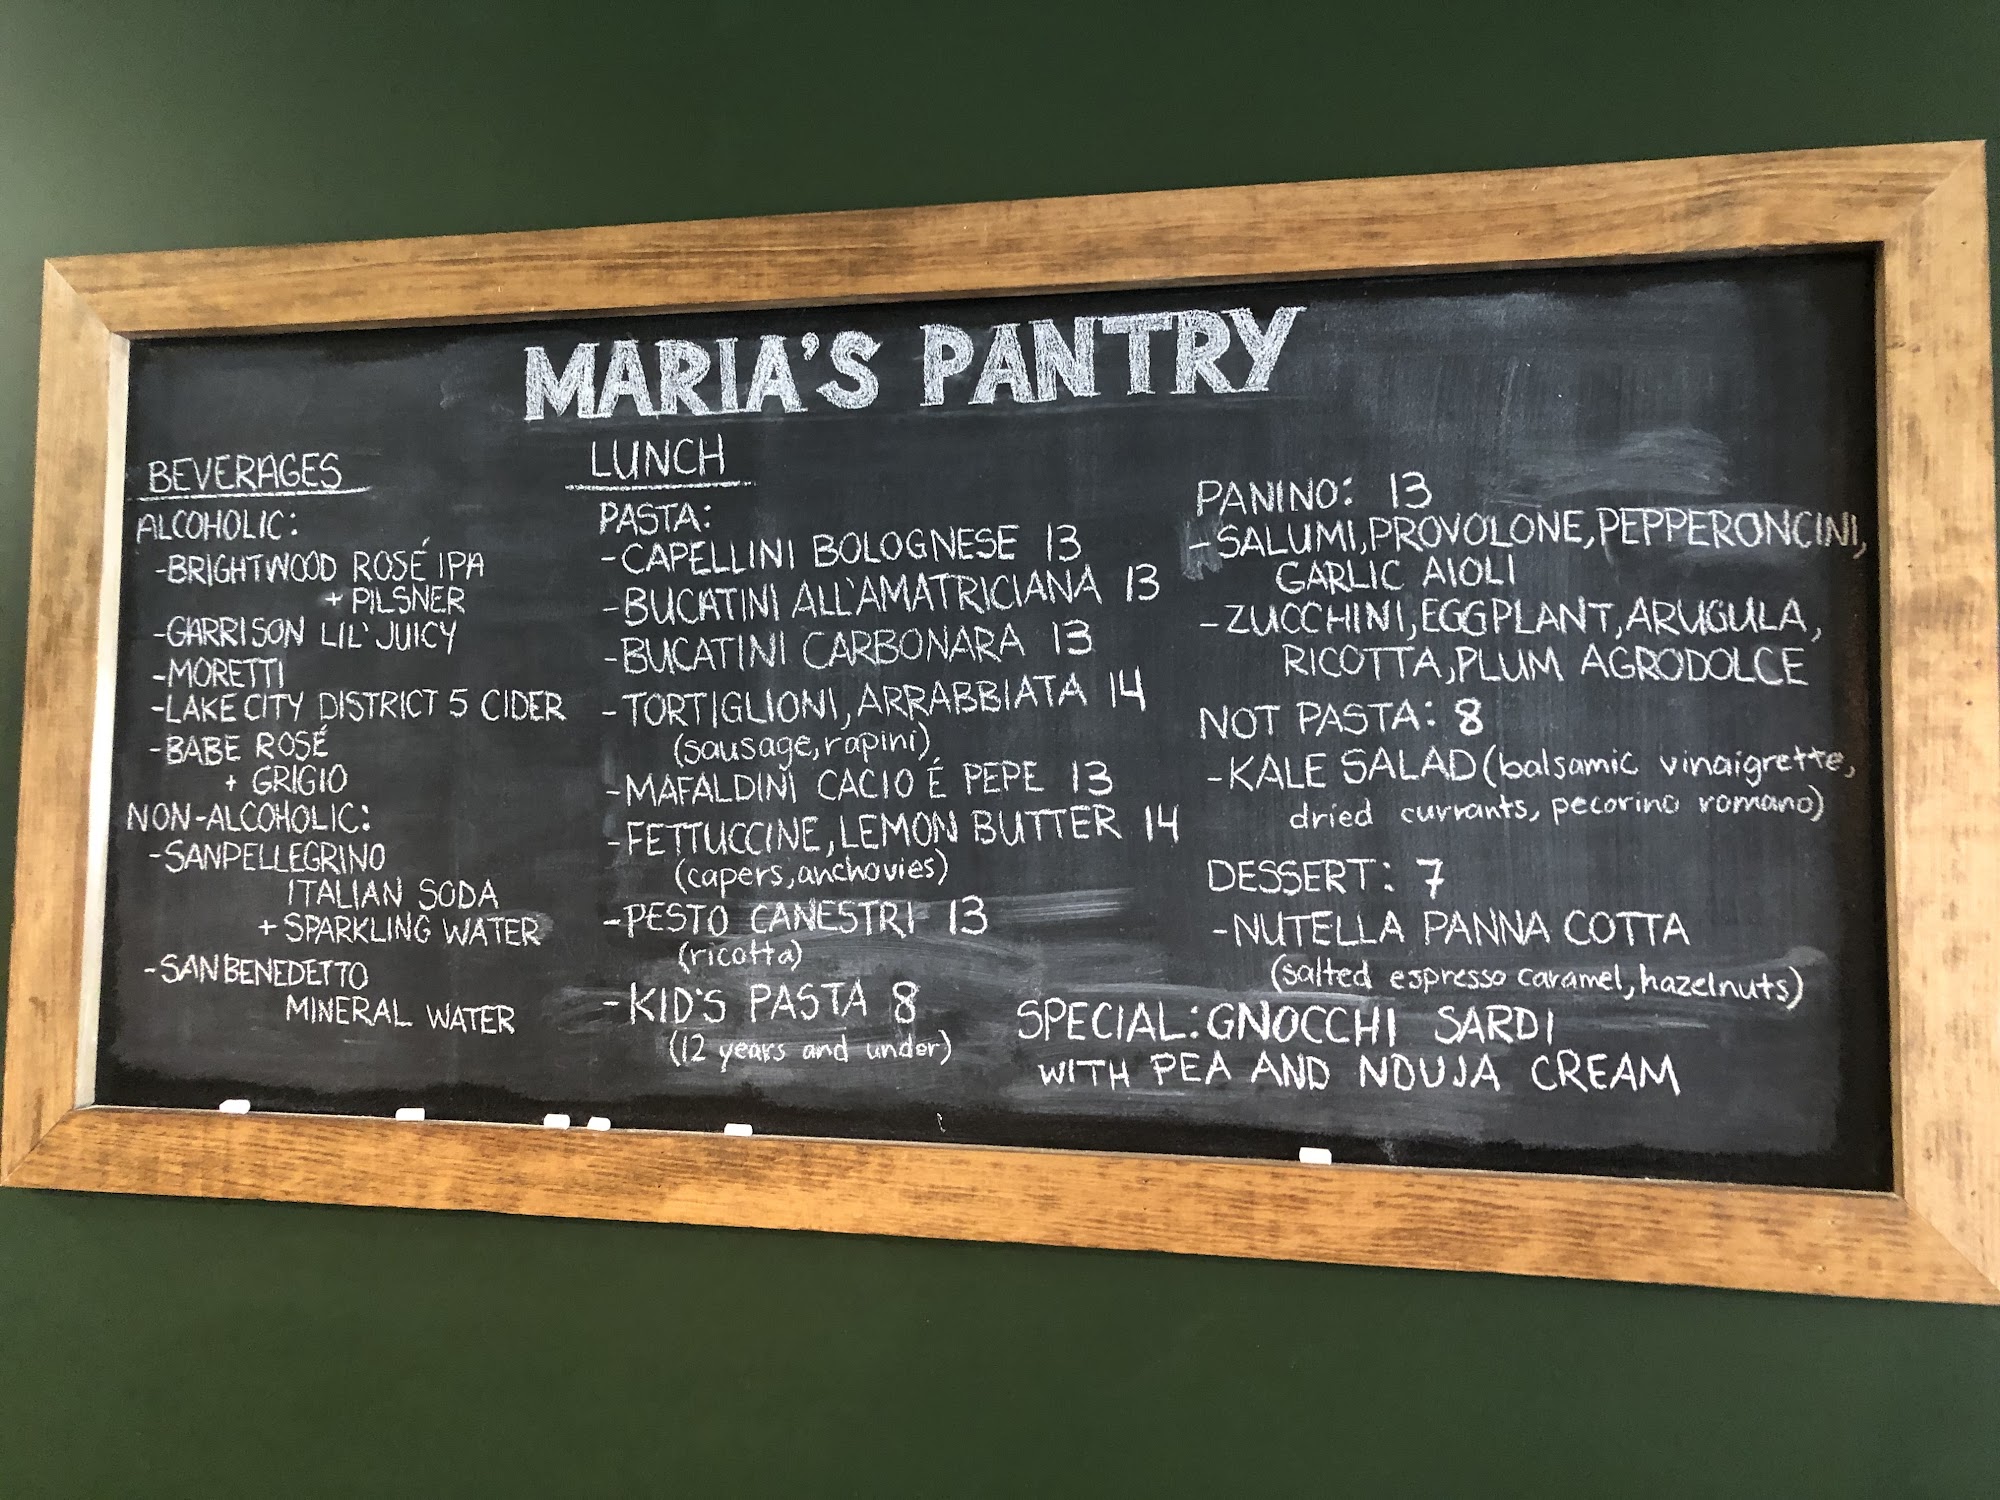 MARIA'S PANTRY
BEVERAGES
ALCOHOLIC:
-BRIGHTWOOD ROSÉ IPA
+ PILSNER
-GARRISON LIL' JUICY
-MORETTI
-LAKE CITY DISTRICT 5 CIDER
-BABE ROSÉ
+ GRIGIO
NON-ALCOHOLIC:
-SANPELLEGRINO
ITALIAN SODA
+ SPARKLING WATER
-SAN BENEDETTO
MINERAL WATER
LUNCH
PASTA:
-CAPELLINI BOLOGNESE 13
-BUCATINI ALL'AMATRICIANA 13
-BUCATINI CARBONARA 13
-TORTIGLIONI, ARRABBIATA 14
(sausage, rapini)
-MAFALDINI CACIO É PEPE 13
-FETTUCCINE, LEMON BUTTER 14
(capers, anchovies)
-PESTO CANESTRI 13
(ricotta)
-KID'S PASTA 8
(12 years and under)
PANINO: 13
-SALUMI, PROVOLONE, PEPPERONCINI,
GARLIC AIOLI
-ZUCCHINI, EGGPLANT, ARUGULA,
RICOTTA, PLUM AGRODOLCE
NOT PASTA: 8
-KALE SALAD (balsamic vinaigrette,
dried currants, pecorino romano)
DESSERT: 7
-NUTELLA PANNA COTTA
(salted espresso caramel, hazelnuts)
SPECIAL: GNOCCHI SARDI
WITH PEA AND NDUJA CREAM